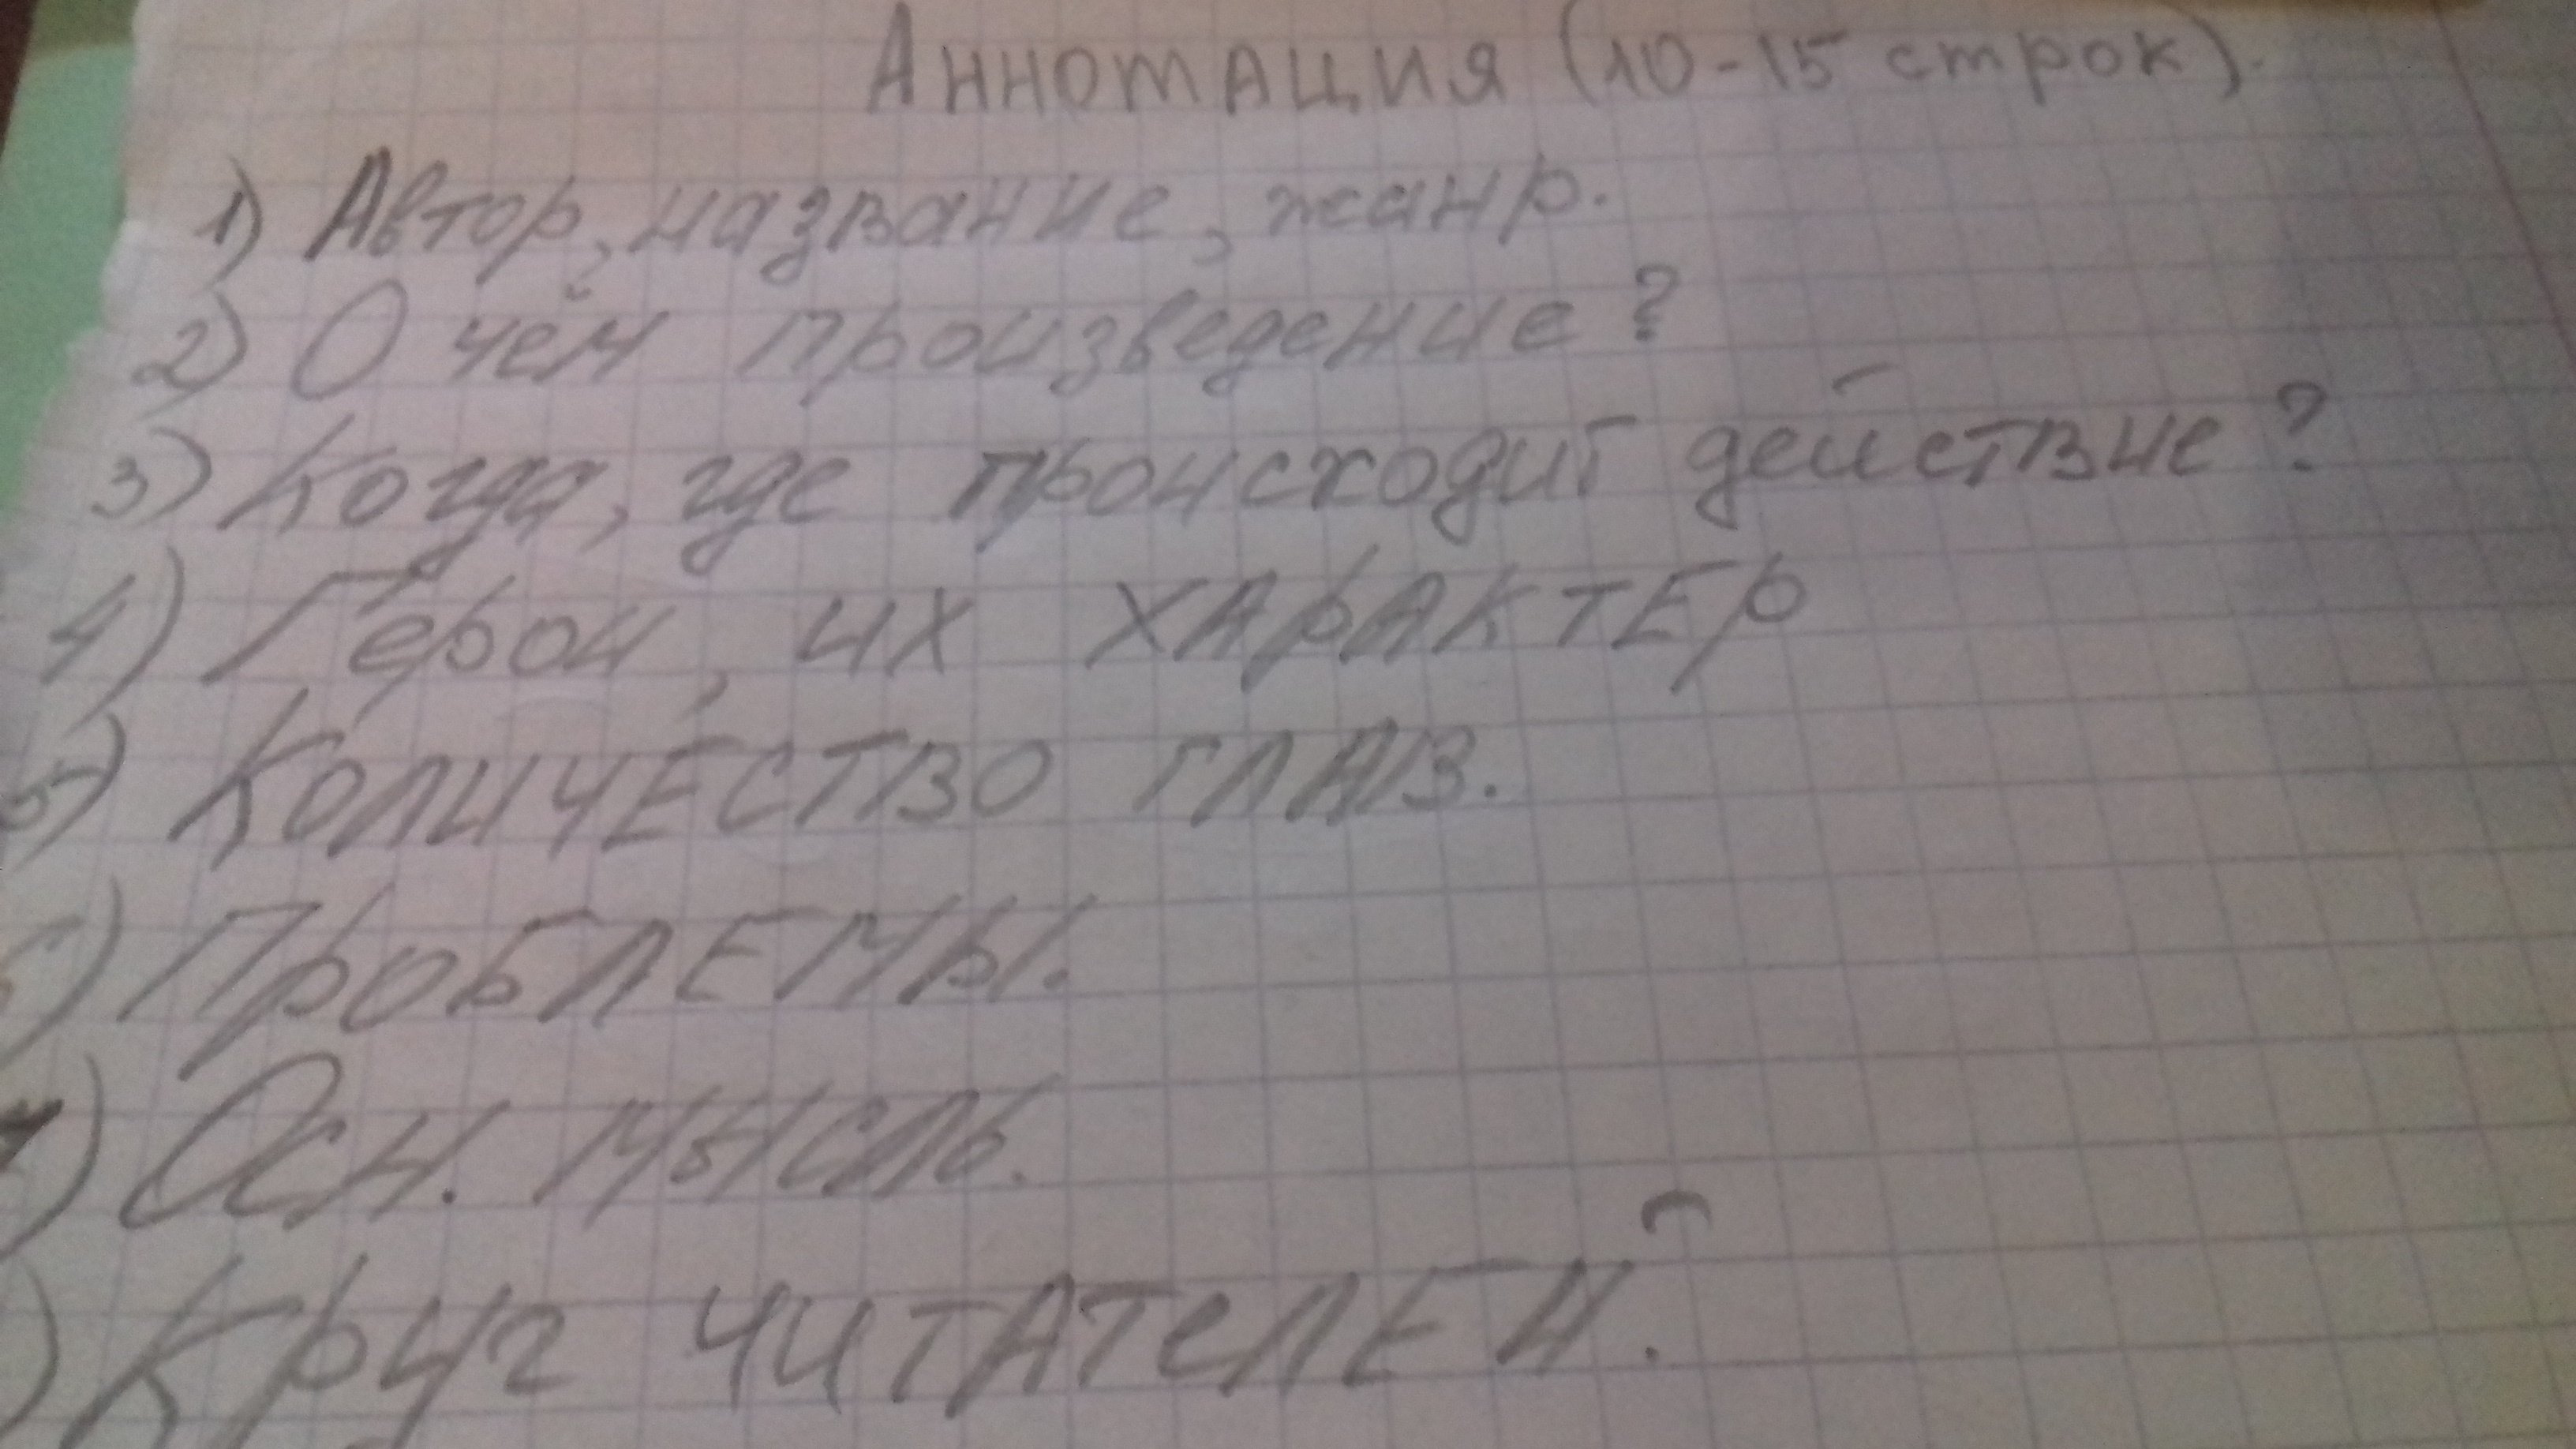 Аннотация (10-15 строк).
1) Автор, название, жанр.
2) О чём произведение?
3) Когда, где происходит действие?
4) Герои, их ХАРАКТЕР
5) Количество глав.
6) Проблемы.
7) Осн. мысль.
) Круг читателей.